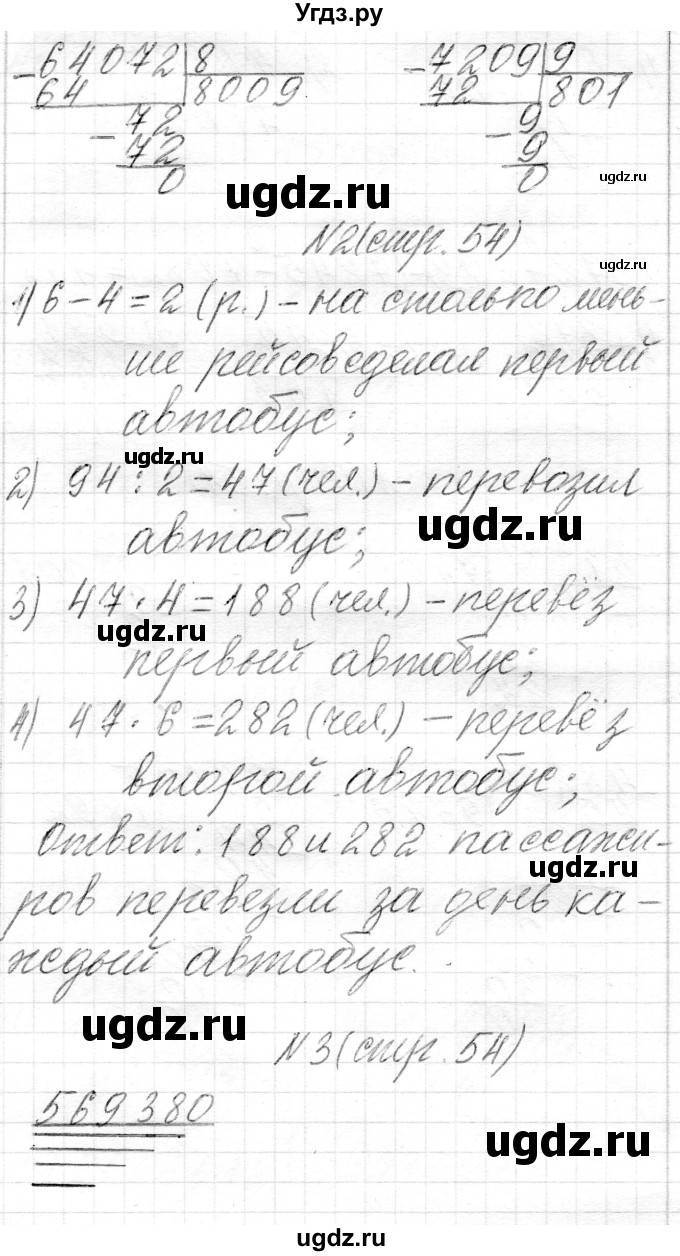 Угдз.ру
- 64072 | 8
64 | 8009
- 72
72
0
- 7209 | 9
72 | 801
- 9
9
0
ugdz.ru
ugdz.ru
N2(стр. 54)
1) 6 - 4 = 2 (р.) - на столько мень-
ше рейсов сделал первый
автобус;
ugdz.ru
2) 94 : 2 = 47 (чел.) - перевозил
ugdz.ru
автобус;
3) 47 · 4 = 188 (чел.) - перевёз
ugdz.ru
первый автобус;
4) 47 · 6 = 282 (чел.) - перевёз
второй автобус;
Ответ: 188 и 282 пассажи-
ugdz.ru
ров перевезли за день ка-
ждый автобус.
ugdz.ru
N3(стр. 54)
569380
ugdz.ru
ugdz.ru